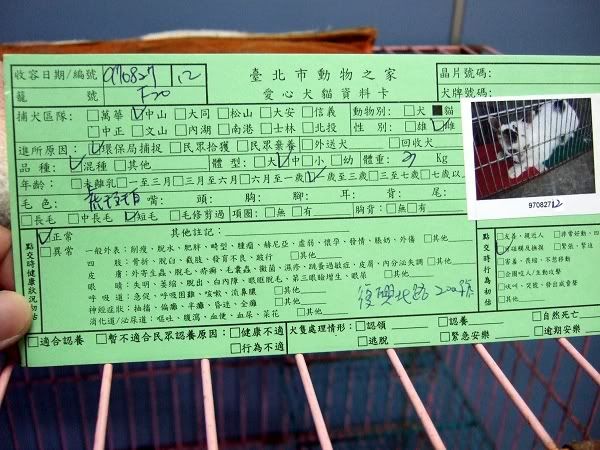 收容日期/編號 970827 12 臺北市動物之家 晶片號碼:
籠號 F20 愛心犬貓資料卡 犬牌號碼:
捕犬區隊: □萬華 ☑中山 □大同 □松山 □大安 □信義 動物別: □犬 ■貓
□中正 □文山 □內湖 □南港 □士林 □北投 性別: □雄 ☑雌
進所原因: ☑環保局捕捉 □民眾拾獲 □民眾棄養 □外送犬 □回收犬
品種: ☑混種 □其他 體型: □大 ☑中 □小 □幼 體重: Kg
年齡: □未離乳 □一至三月 □三月至六月 □六月至一歲 ☑一歲至三歲 □三歲至七歲 □七歲以上
毛色: 嘴: 頭: 腳: 耳: 背: 尾:
□長毛 □中長毛 ☑短毛 □毛修剪過 項圈: □無 □有 胸背: □無 □有
970827 12
點交時健康狀況初估
☑正常 其他註記:
□異常 一般外表: 削瘦、脫水、肥胖、畸型、腫瘤、赫尼亞、虛弱、懷孕、發情、脹奶、外傷 □其他
四肢: 骨折、脫臼、截肢、發育不良、跛行 □其他
皮膚: 外寄生蟲、脫毛、疥癬、毛囊蟲、黴菌、濕疹、跳蚤過敏症、皮屑、內分泌失調 □其他
眼睛: 失明、萎縮、脫出、白內障、眼眶脫毛、第三眼瞼增生、眼屎 □其他
呼吸道: 急促、呼吸困難、咳嗽、流鼻膿 □其他
神經症狀: 抽搐、偏癱、半癱、昏迷、全癱 □其他
消化道/泌尿道: 嘔吐、腹瀉、血便、血尿、菜花 □其他
復興北路200號
點交時行為初估
□友善、親近人 □非常好動、
□可碰觸及撫摸 □緊張、緊迫
□害羞、畏縮、不想移動
□企圖咬人/主動攻擊
□吠叫、哭號、發出威脅聲
□其他
□適合認養 □暫不適合民眾認養原因: □健康不適 犬隻處理情形: □認領 □認養 □自然死亡
□行為不適 □逃脫 □緊急安樂 □逾期安樂